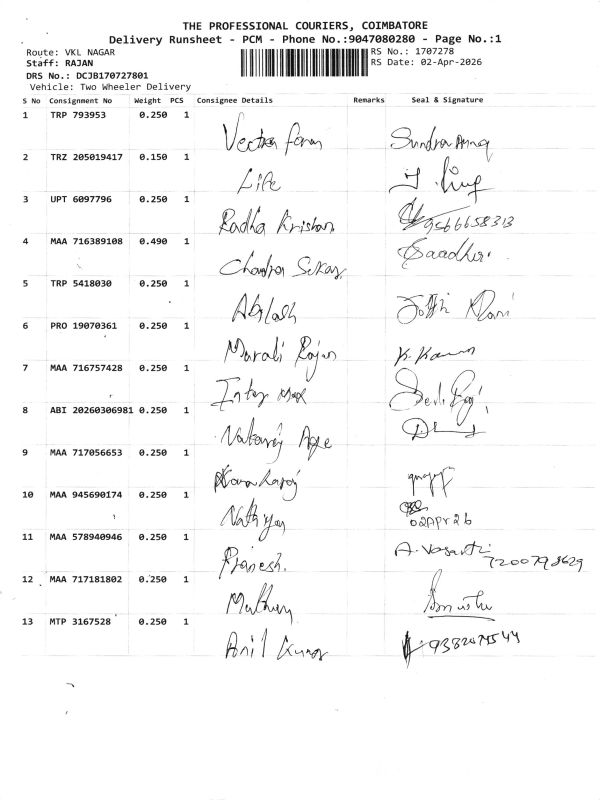 THE PROFESSIONAL COURIERS, COIMBATORE
Delivery Runsheet - PCM - Phone No.:9047080280 - Page No.:1
Route: VKL NAGAR RS No.: 1707278
Staff: RAJAN RS Date: 02-Apr-2026
DRS No.: DCJB170727801
Vehicle: Two Wheeler Delivery
S No Consignment No Weight PCS Consignee Details Remarks Seal & Signature
1 TRP 793953 0.250 1
2 TRZ 205019417 0.150 1
Life
3 UPT 6097796 0.250 1
Radha Krishan 9566658313
4 MAA 716389108 0.490 1
Chandra Sekar
5 TRP 5418030 0.250 1
Abilash
6 PRO 19070361 0.250 1
Murali Rajan
7 MAA 716757428 0.250 1
Inter max
8 ABI 20260306981 0.250 1
9 MAA 717056653 0.250 1
10 MAA 945690174 0.250 1
02Apr26
11 MAA 578940946 0.250 1
Pranesh. A. Vasanti
7200798629
12 MAA 717181802 0.250 1
13 MTP 3167528 0.250 1
Anil Kumar